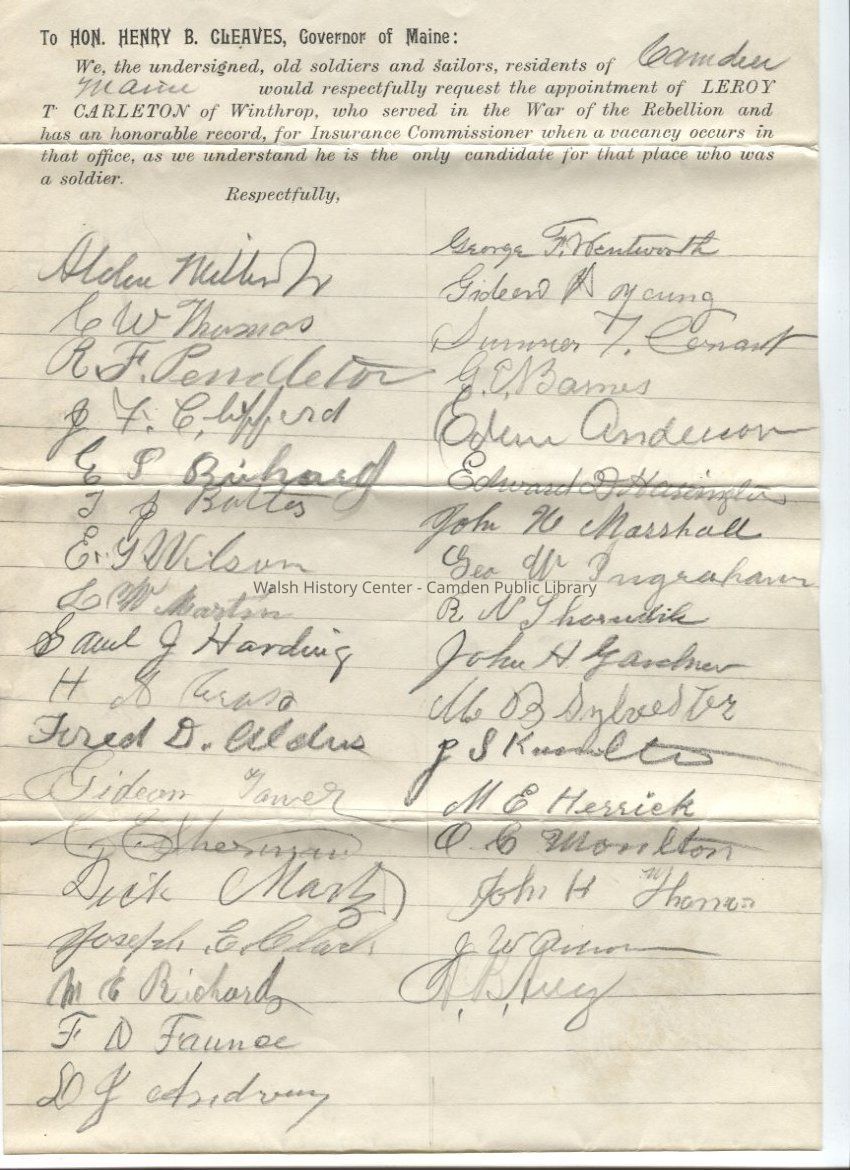 To HON. HENRY B. CLEAVES, Governor of Maine:
We, the undersigned, old soldiers and sailors, residents of Camden
Maine would respectfully request the appointment of LEROY
T. CARLETON of Winthrop, who served in the War of the Rebellion and
has an honorable record, for Insurance Commissioner when a vacancy occurs in
that office, as we understand he is the only candidate for that place who was
a soldier.
Respectfully,
Alden Miller Jr
C W Thomas
R. F. Pendleton
J. F. Clifford
E S
T J
E. G Wilson
L W Martin
Saml J Harding
H
Fred D. Aldus
Gideon Tower
Sherman
Dick
Joseph E. Clark
M E Richards
F D Faunce
George F. Wentworth
Gideon Young
Sumner T. Conant
G. Barnes
Anderson
Edward D
John W Marshall
Geo W Ingraham
R N Thorndik
John H Gardner
M B Sylvester
J S Knowlton
M E Herrick
O C Moulton
John H Thomas
J W
Walsh History Center - Camden Public Library